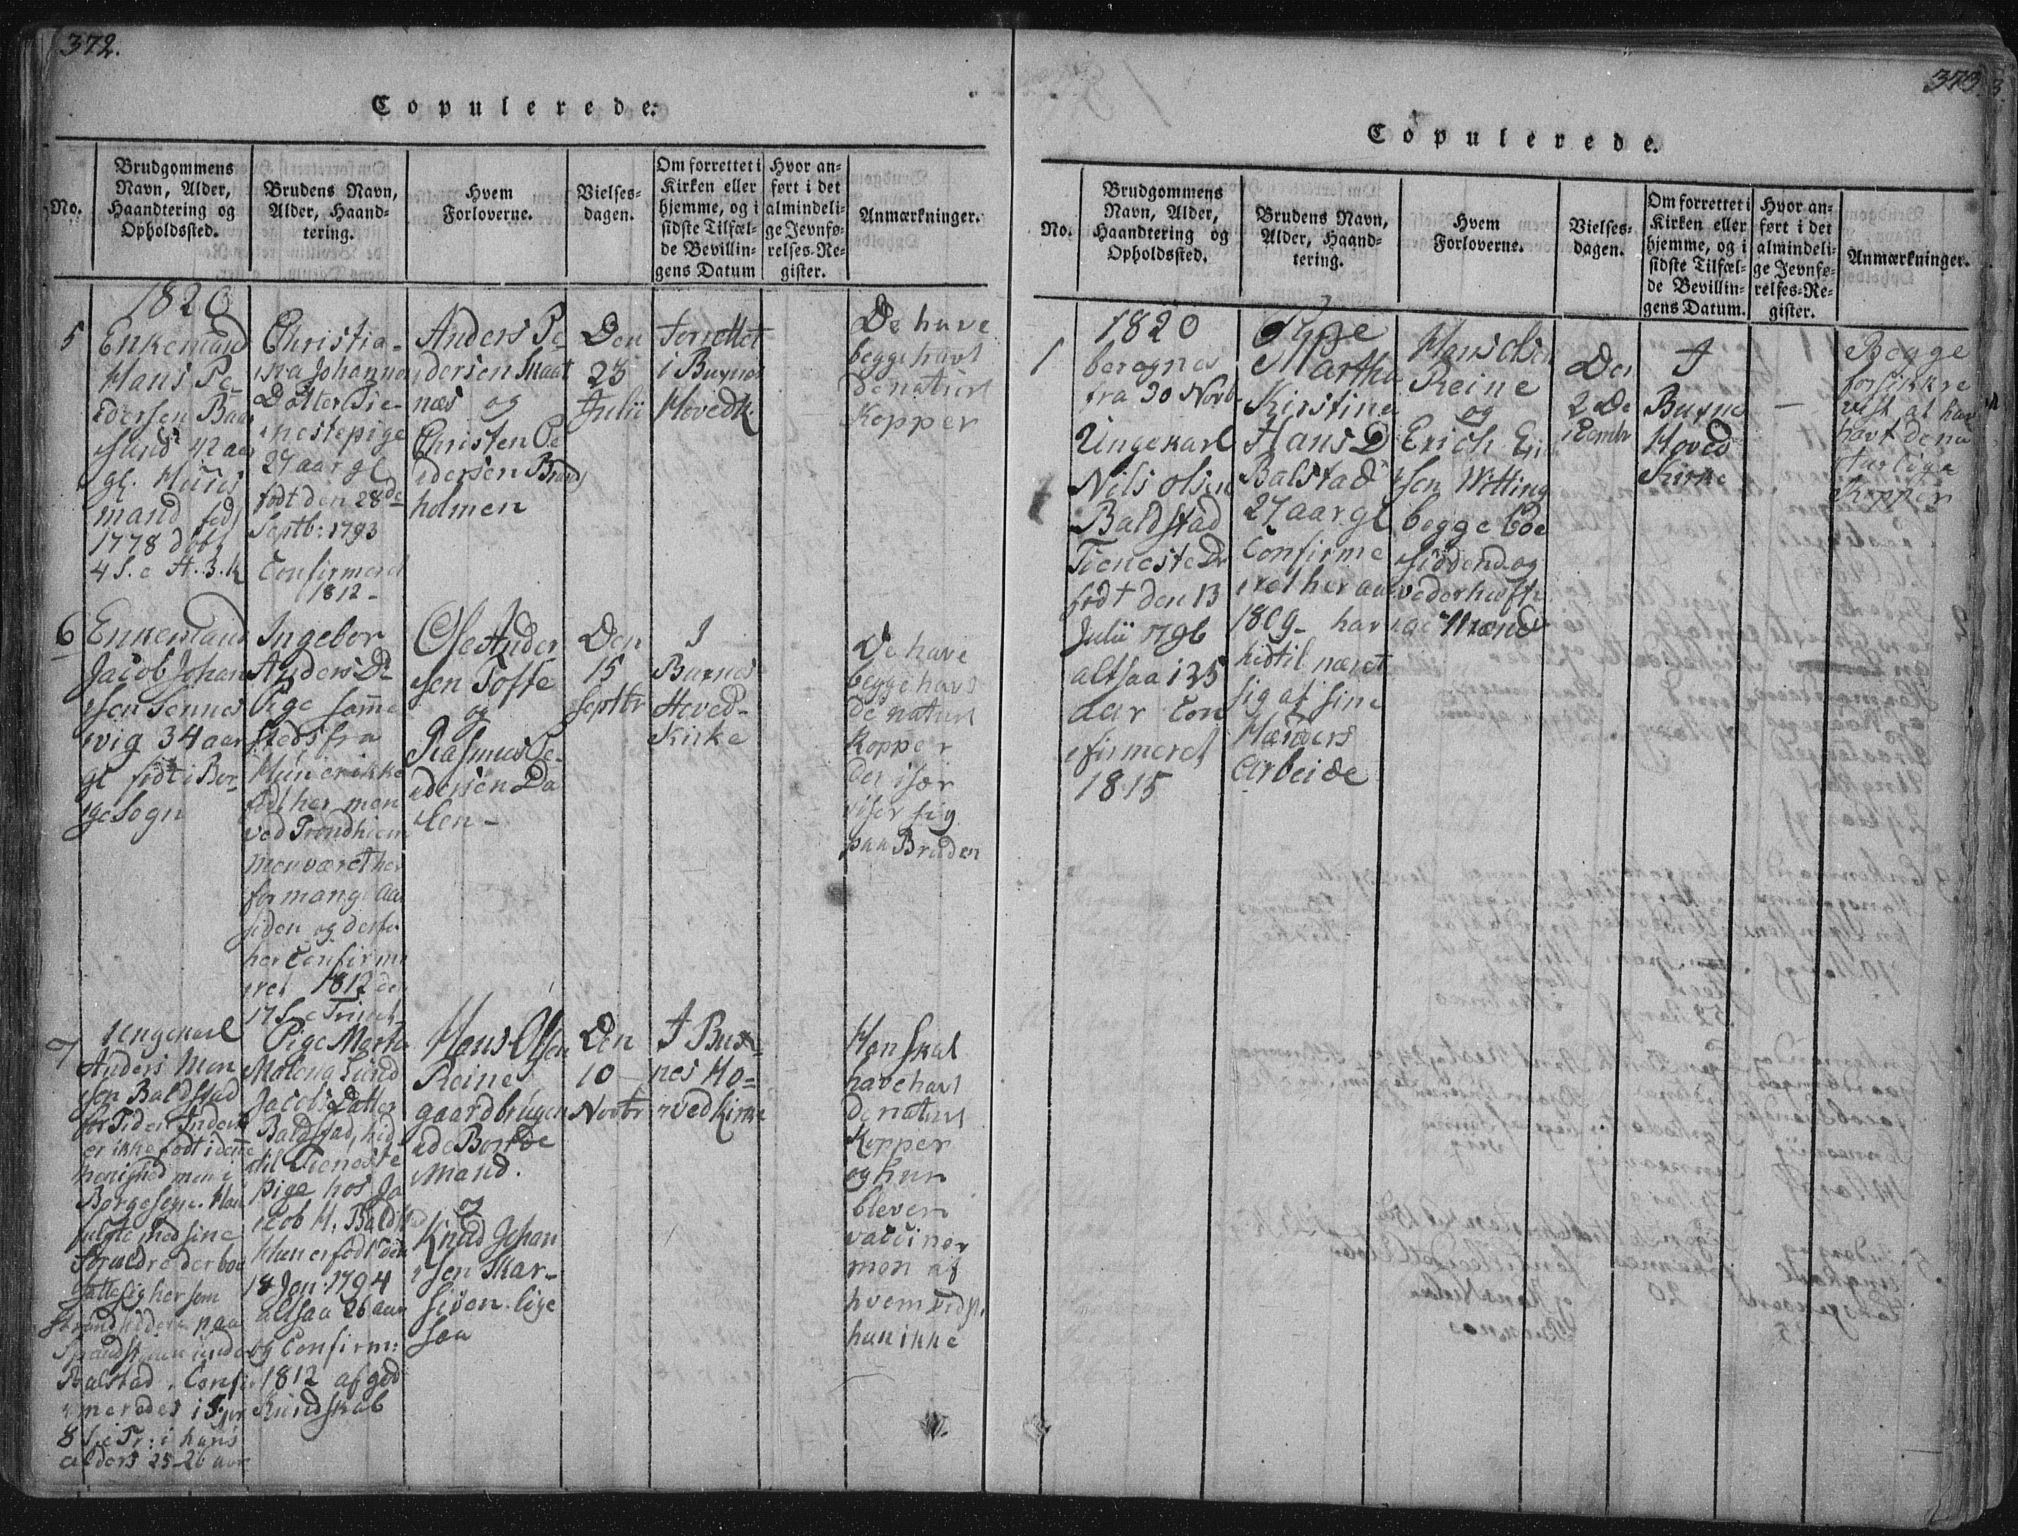 372.
Copulerede.
No.
Brudgommens
Navn, Alder,
Haandtering og
Opholdssted.
Brudens Navn,
Alder, Haand-
tering.
Hvem
Forloverne.
Vielses-
dagen.
Om forrettet i
Kirken eller
hjemme, og i
sidste Tilfæl-
de Bevillin-
gens Datum
Hvor an-
ført i det
almindeli-
ge Jevnfø-
relses-Re-
gister.
Anmærkninger.
1820
5
Enkemand
Hans Pe-
dersen
sund 42 aar
gl.
mand fød
1778 døbt
4 S. e H. 3. K
Christia-
Johannes
Datter Tie-
nestepige
27 aar gl
født den 28de
Septb: 1793
Confirmeret
1812-
Anders Pe-
dersen
næs og
Christen Pe
dersen
holmen
Den
23
Julii
Forrettet
i Buxnæs
Hovedk.
De have
begge havt
de naturl
Kopper
6
Enkemand
Jacob Johan
sen Sennes
vig 34 aar
gl født i Bor-
ge Sogn
Ingebor
Anders D
Pige samme
steds fra
Hun er ikke
født her men
ved Trondhiem
men været her
for mange aar
siden og derfor
her Confirme
ret 1812 den
17 S. e Trinit
Ole Ander
sen Tofte
og
Rasmus Pe-
dersen Da
len-
Den
15
Septbr
I
Buxnes
Hoved-
Kirke
De have
begge havt
de naturl
Kopper
der især
viser sig
paa Bruden
7
Ungekarl
Anders Mon
sen Baldstad
for Tiden Inderst
er ikke født i denne
menighed men i
Borge Sogn. Han
fulgte med sine
Foreldre der boe
satte sig her som
Strandsiddere paa
under
Balstad. Confir
meredes i
8 S. e Tr: i hans
alders 25-26 aar
Pige Marth
Malena Lund
Jacobs Datter
Baldstad, hid
til Tieneste
pige hos Ja
cob H. Baldst
Hun er født den
18 Jan: 1794
altsaa 26 aar
og Confirm:
1812 af god
Kundskab
Hans Olsen
Reine
gaardbrugen
de Bonde
Mand.
og
Knud Johan
sen Skar-
siven lige
saa
Den
10
Novbr
I Bux-
nes Ho-
vedkirke
Han skal
have havt
de naturl
Kopper
og hun
bleven
vaccinet
men af
hvem vidst
han ikke
373.
Copulerede.
No.
Brudgommens
Navn, Alder,
Haandtering og
Opholdssted.
Brudens Navn,
Alder, Haand-
tering.
Hvem
Forloverne.
Vielses-
dagen.
Om forrettet i
Kirken eller
hjemme, og i
sidste Tilfæl-
de Bevillin-
gens Datum.
Hvor an-
ført i det
almindeli-
ge Jevnfø-
relses-Re-
gister.
Anmærkninger.
1
1820
beregnes
fra 30 Novb
Ungekarl
Nils Olsen
Baldstad
Tieneste Dr
født den 13
Julii 1796
altsaa i 25
aar Con
firmeret
1815
Pige
Martha
Kirstine
Hans D
Balstad
27 aar gl
Confirme
ret her aar
1809- har
hidtil næret
sig af sine
Hænders
Arbeide
Hans Olsen
Reine
og
Erich Eri
sen Witting
begge Boe
siddende og
vederhæfti
ge Mænd
Den
2 De
cembr
I
Buxne
Hoved
Kirke
—
Begge
forsikkre
vist at have
havt de na
turlige
Kopper